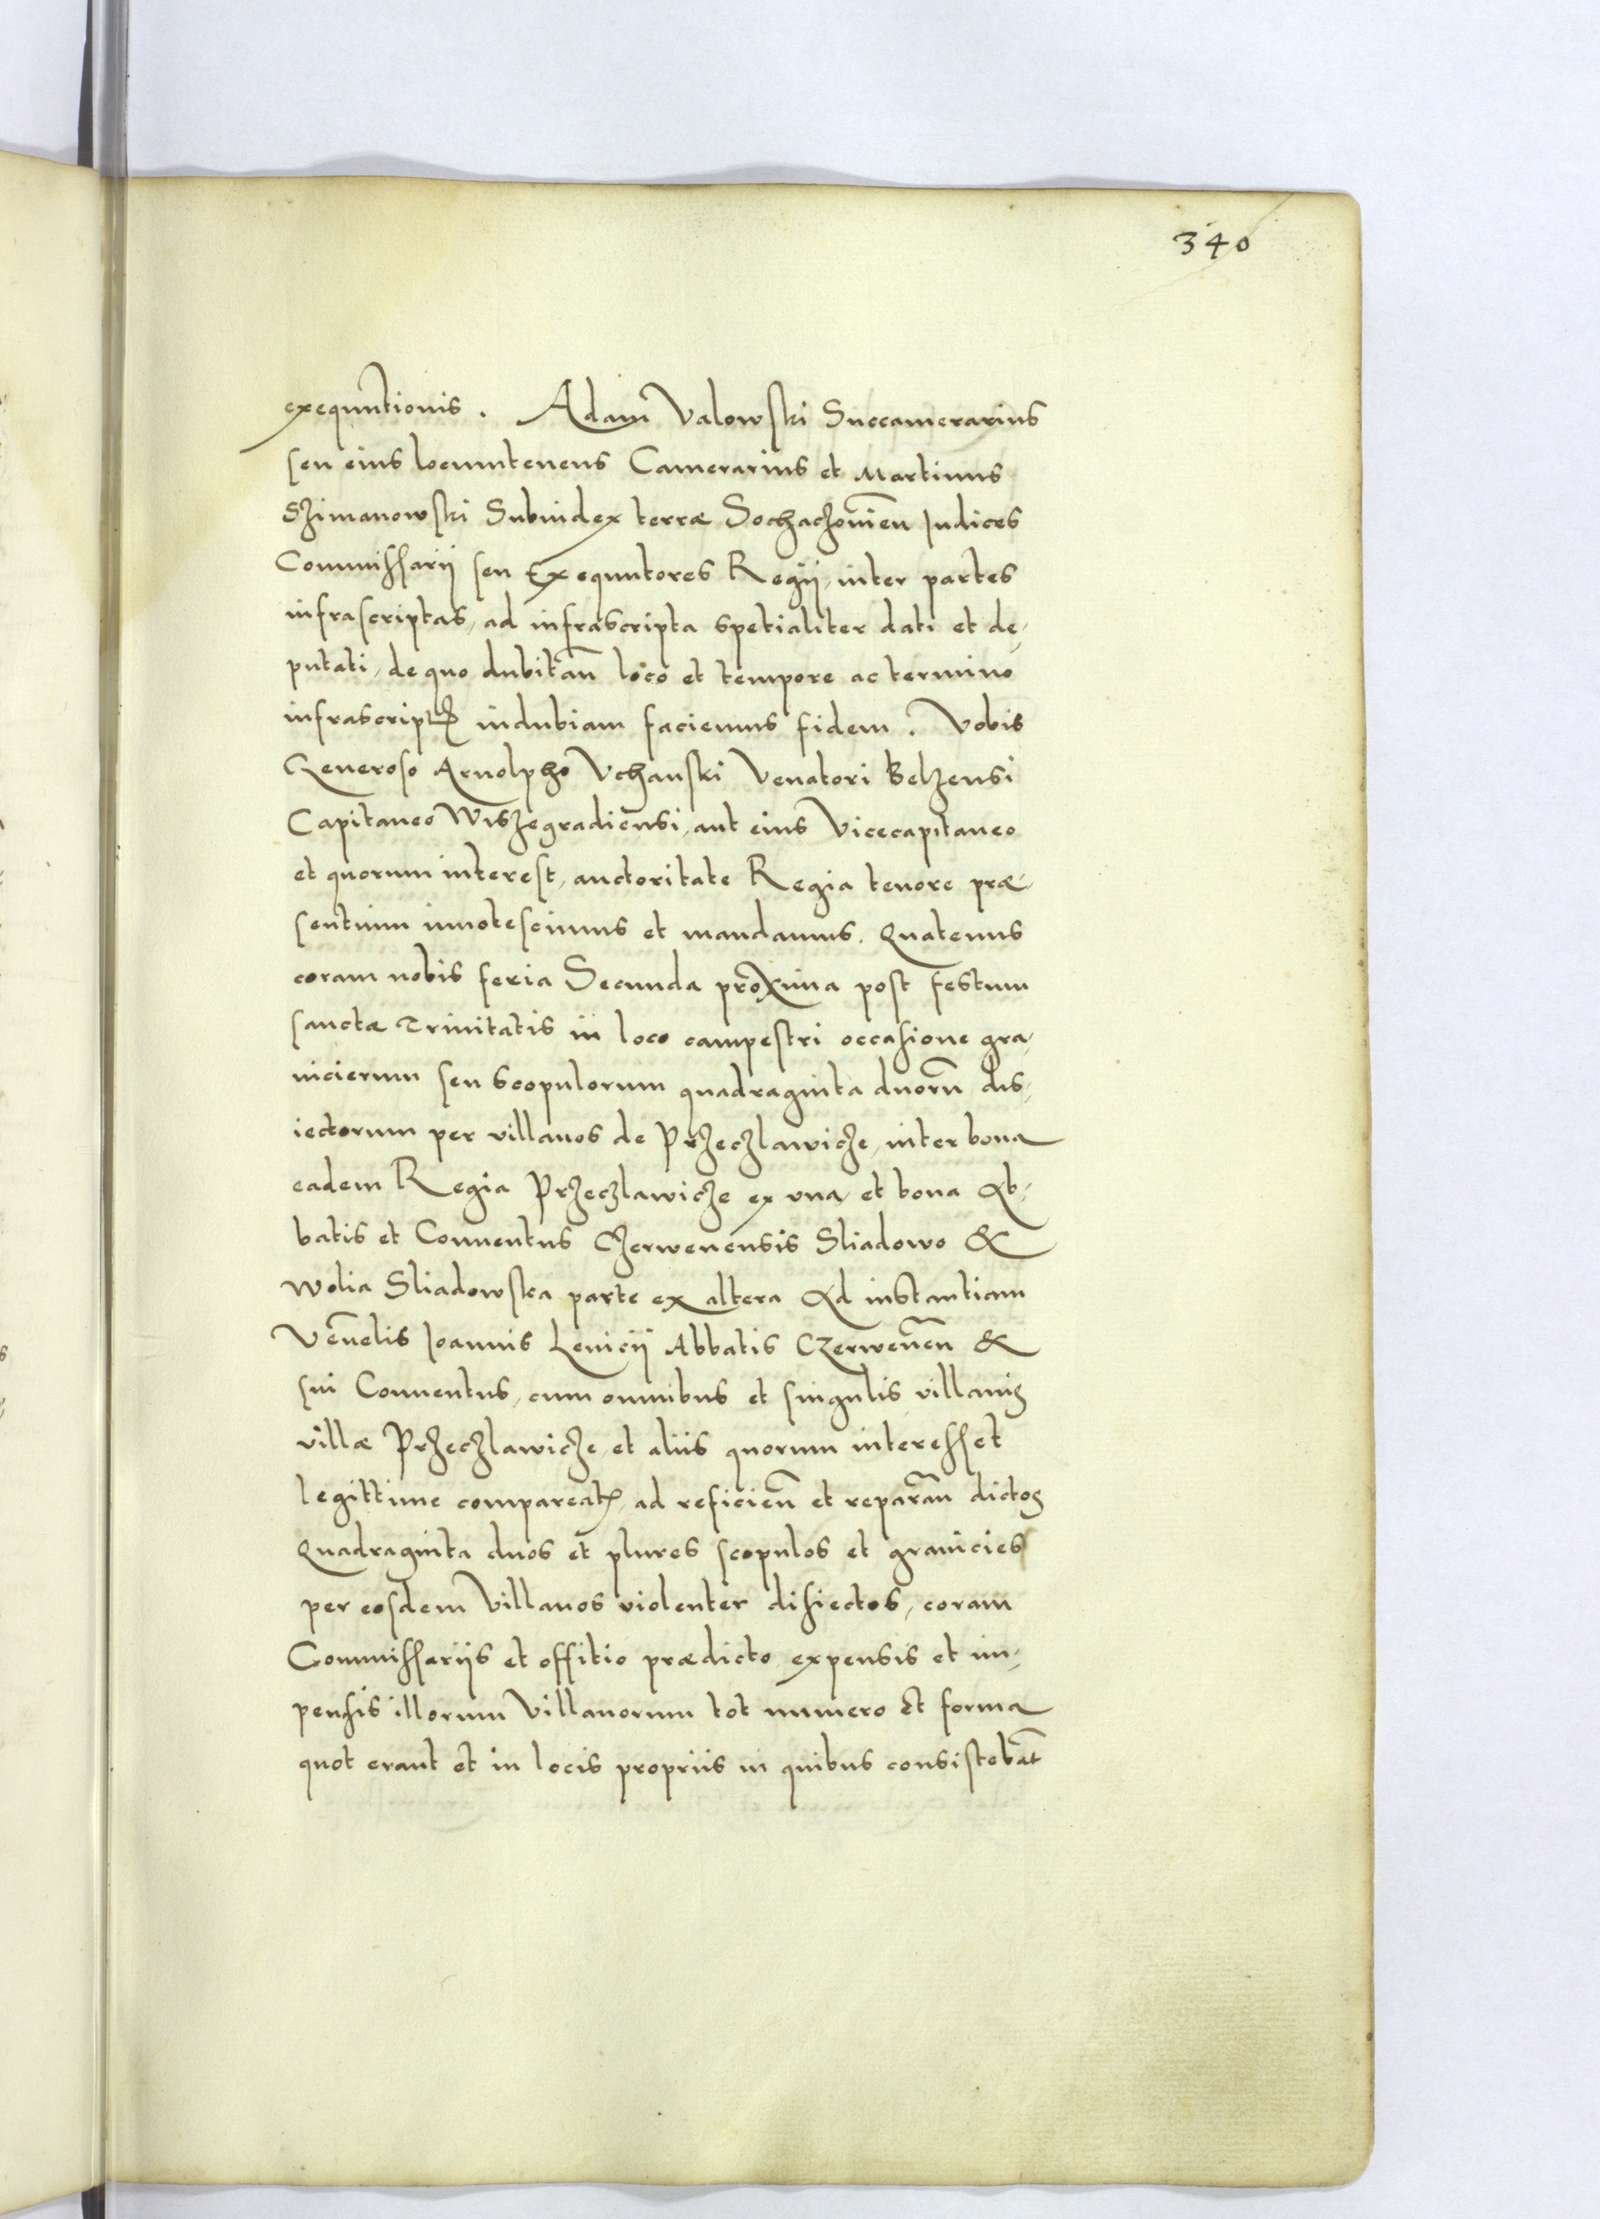 340
exequutionis. Adam Valowski Succamerarius
seu eius locumtenens Camerarius et Martinus
Szimanowski Subiudex terræ Sochaczouien̄ Iudices
Commissarij seu Exequutores Regij, inter partes
infrascriptas, ad infrascripta spetialiter dati et de-
putati, de quo dubitan̄ loco et tempore ac termino
infrascriptꝭ indubiam facimus fidem. Vobis
Generoso Arnolpho Vchanski Venatori Belzensi
Capitaneo Wiszegradiensi, aut eius Vicecapitaneo
et quorum interest, auctoritate Regia tenore præ-
sentium innotescimus et mandamus. Quatenus
coram nobis feria Secunda proxima post festum
sanctæ Trinitatis in loco campestri occasione gra-
nicierum seu scopulorum quadraginta duorū dis-
iectorum per villanos de Przeczlawicze, inter bona
eadem Regia Przeczlawicze ex vna et bona Ab-
batis et Conuentus Czerwenensis Sliadowo &
Wolia Sliadowska parte ex altera Ad instantiam
Ven̄elis Ioannis Lenicij Abbatis Czerwenen̄ &
sui Conuentus, cum omnibus et singulis villanis
villæ Przeczlawicze, et aliis quorum interesset
legittime compareatꝭ, ad reficien̄ et reparan̄ dictos
Quadraginta duos et plures scopulos et granicies
per eosdem Villanos violenter disiectos, coram
Commissariis et offitio prædicto expensis et im-
pensis illorum Villanorum tot numero et forma
quot erant et in locis propriis in quibus consistebāt